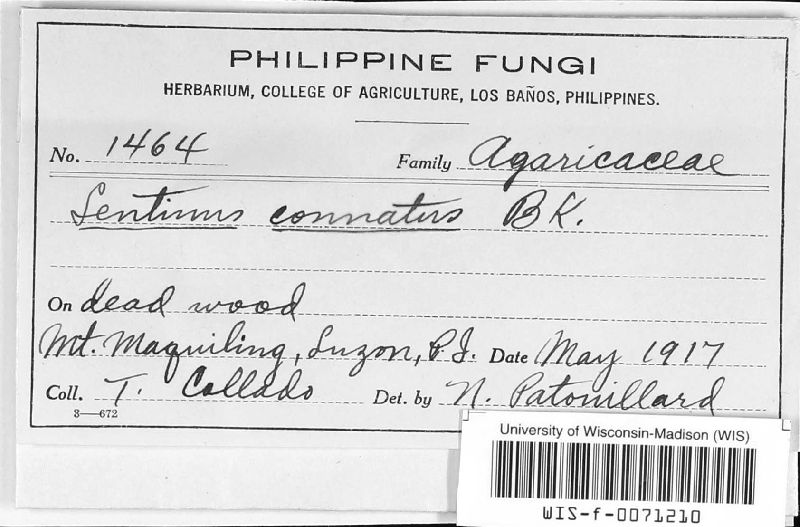 PHILIPPINE FUNGI
HERBARIUM, COLLEGE OF AGRICULTURE, LOS BAÑOS, PHILIPPINES.
No. 1464 Family Agaricaceae
Lentinus connatus BK.
On dead wood
Mt. Maquiling, Luzon, P.I. Date May 1917
Coll. T. Collado Det. by N. Patouillard
3—672
University of Wisconsin-Madison (WIS)
WIS-f-0071210